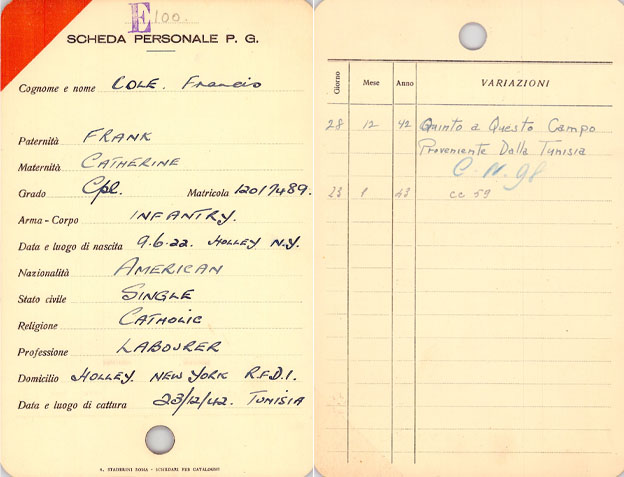 E 100.
SCHEDA PERSONALE P. G.
Cognome e nome COLE. Francis
Paternità FRANK
Maternità CATHERINE
Grado Cpl. Matricola 12017489.
Arma - Corpo INFANTRY.
Data e luogo di nascita 9.6.22. HOLLEY N.Y.
Nazionalità AMERICAN
Stato civile SINGLE
Religione CATHOLIC
Professione LABOURER
Domicilio HOLLEY. NEW YORK R.F.D.1.
Data e luogo di cattura 23/12/42. TUNISIA
S. STADERINI ROMA - SCHEDARI PER CATALOGHI
Giorno Mese Anno VARIAZIONI
28 12 42 Quinto a Questo Campo
Proveniente Dalla Tunisia
C. N. 98
23 1 43 cc 59